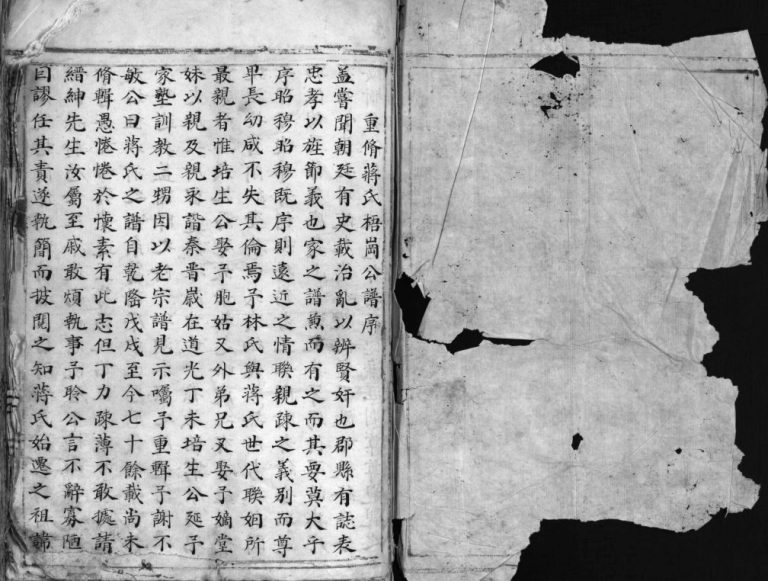 重脩蔣氏梧崗公譜序
蓋嘗聞朝廷有史載治亂以辨賢奸也郡縣有誌表
忠孝以旌節義也家之譜兼而有之而其要莫大乎
序昭穆昭穆既序則遠近之情聯親疎之義別而尊
卑長幼咸不失其倫焉予林氏與蔣氏世代聯姻所
最親者惟培生公娶予胞姑又外弟兄又娶予嫡堂
妹以親及親永諧秦晋歲在道光丁未培生公延予
家塾訓教二甥因以老宗譜見示囑予重輯予謝不
敏公曰蔣氏之譜自乾隆戊戌至今七十餘載尚未
脩輯愚惓惓於懷素有此志但丁力疎薄不敢遽請
縉紳先生汝屬至戚敢煩執事予聆公言不辭寡陋
曰謬任其責遂執簡而披閱之知蔣氏始遷之祖諱